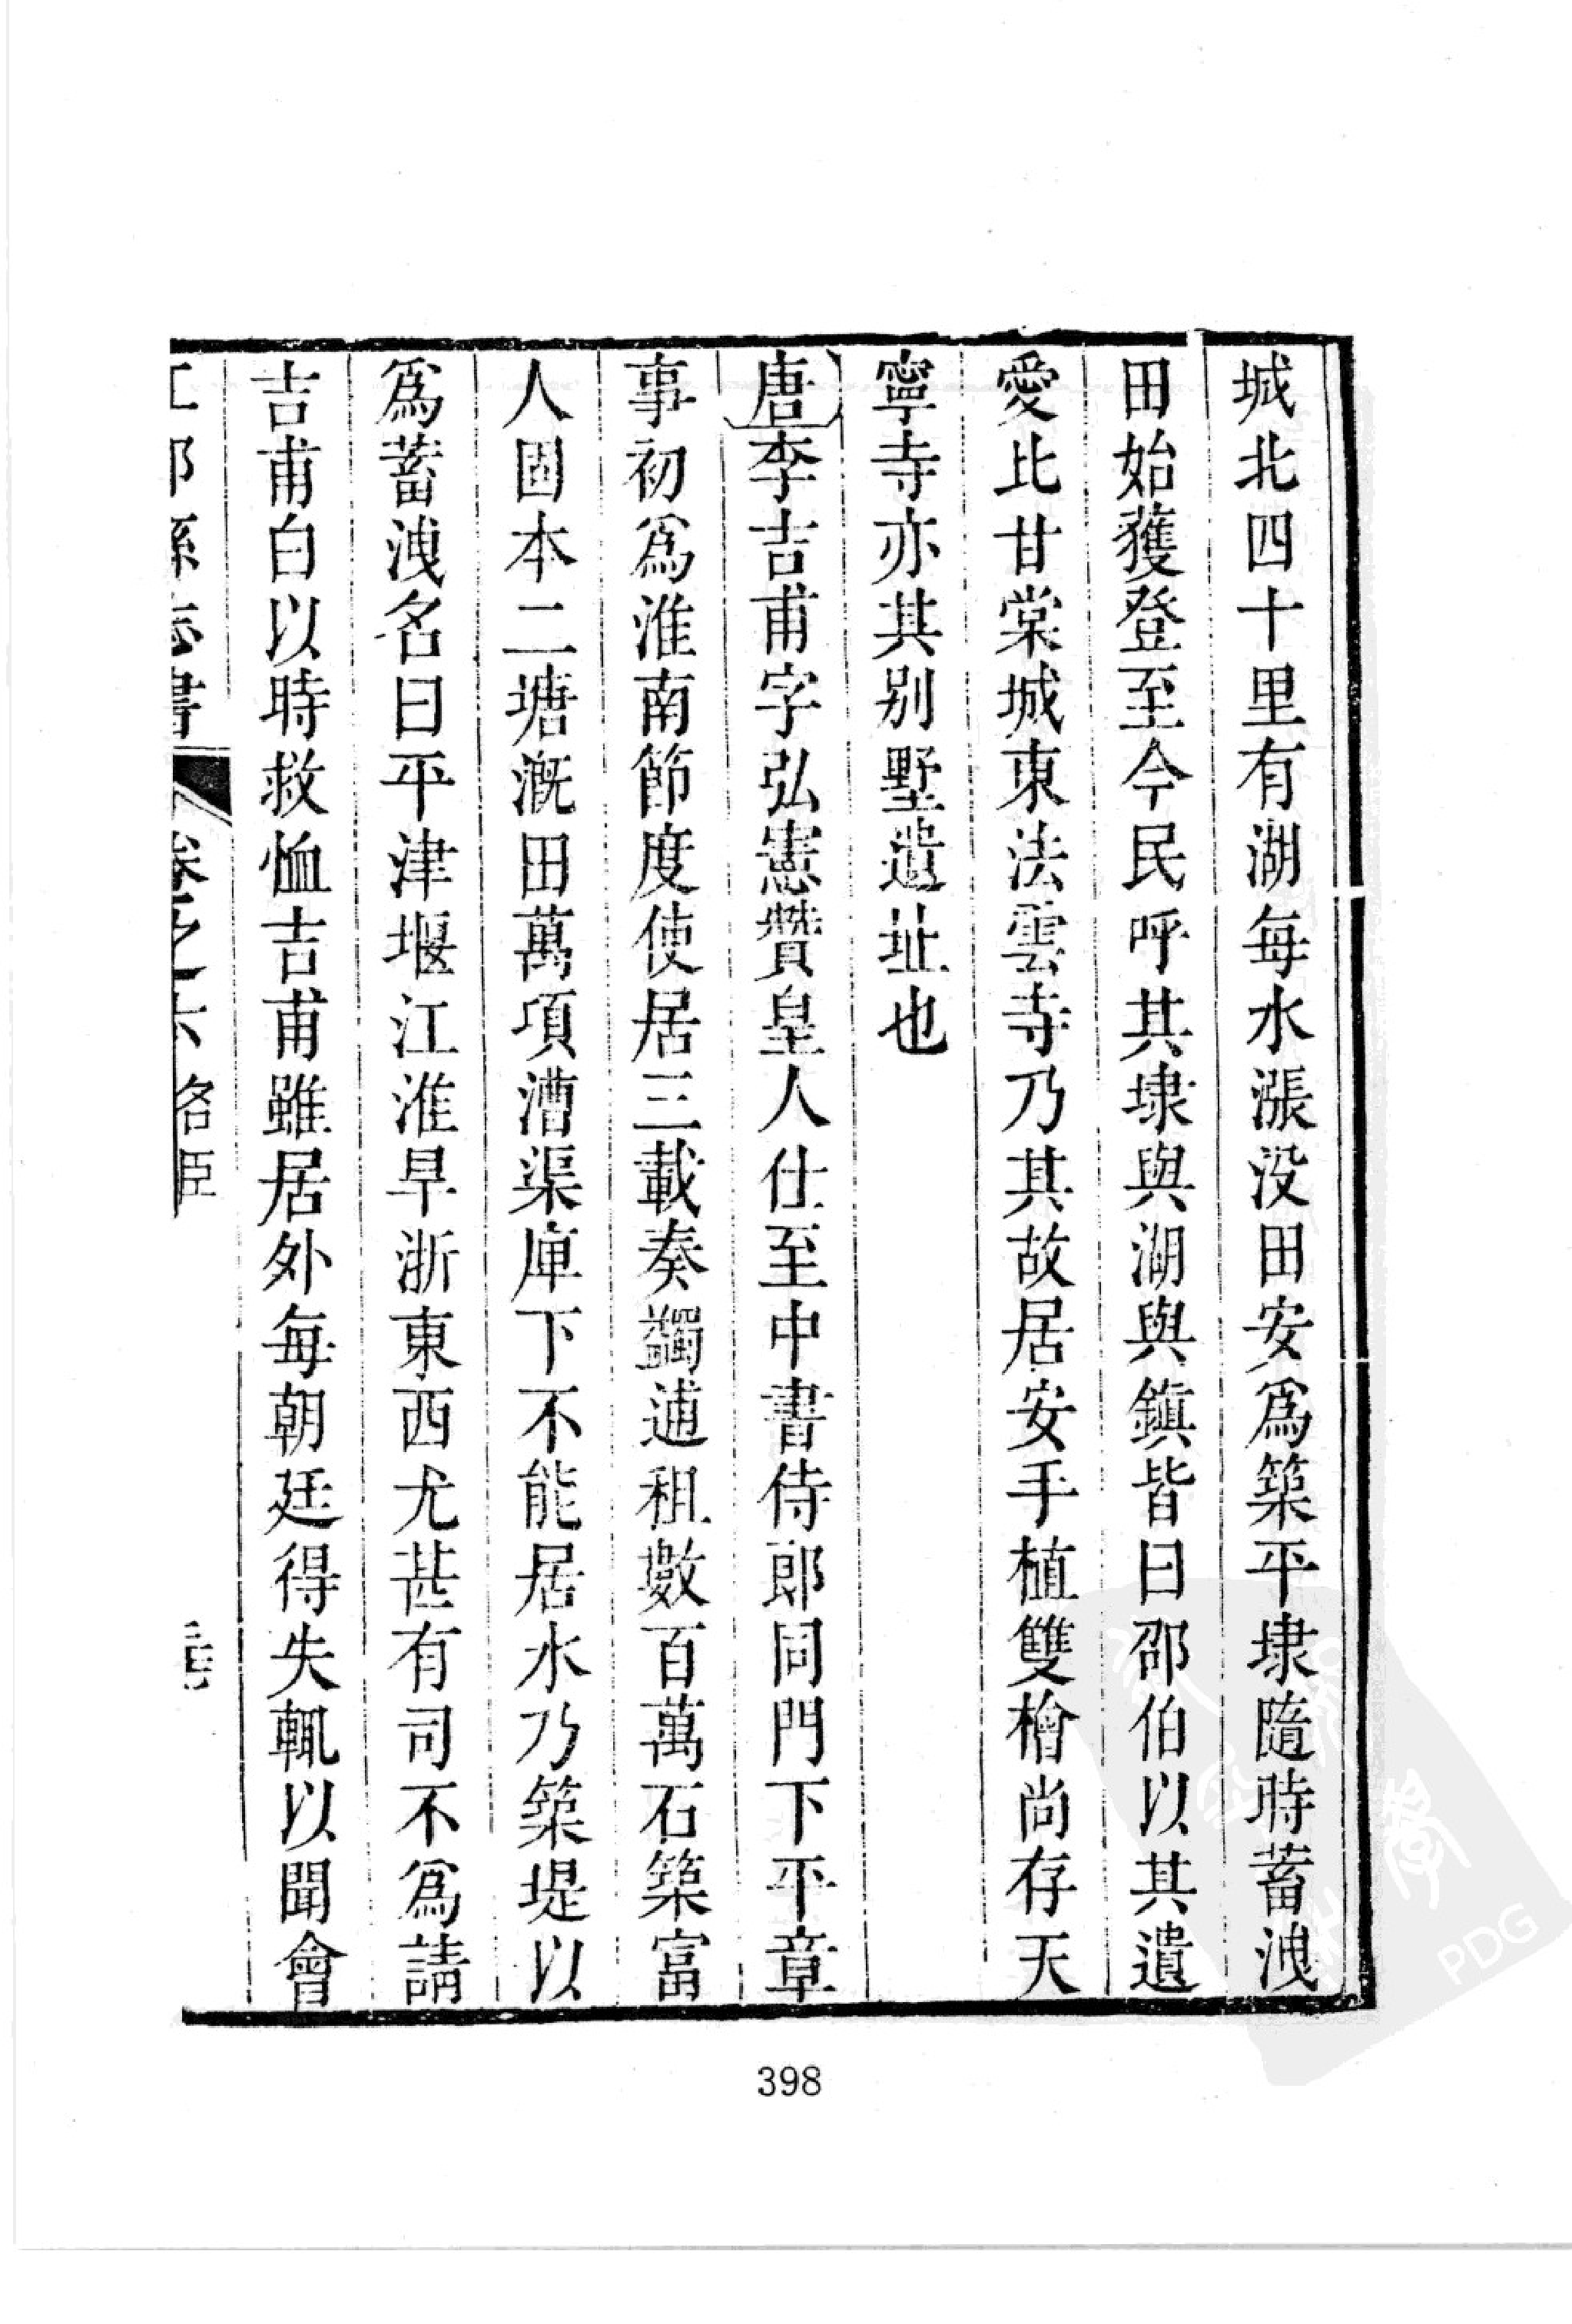 城北四十里有湖每水漲没田安為築平埭隨時蓄洩
田始獲登至今民呼其埭與湖與鎮皆曰邵伯以其遺
愛比甘棠城東法雲寺乃其故居安手植雙檜尚存天
寧寺亦其別墅遺址也
唐李吉甫字弘憲贊皇人仕至中書侍郎同門下平章
事初爲淮南節度使居三載奏蠲逋租數百萬石築富
人固本二塘溉田萬項漕渠庳下不能居水乃築堤以
爲蓄洩名曰平津堰江淮旱浙東西尤甚有司不爲請
吉甫白以時救恤吉甫雖居外每朝廷得失輒以聞會
江都縣志書 卷之六 名臣
398
PDG